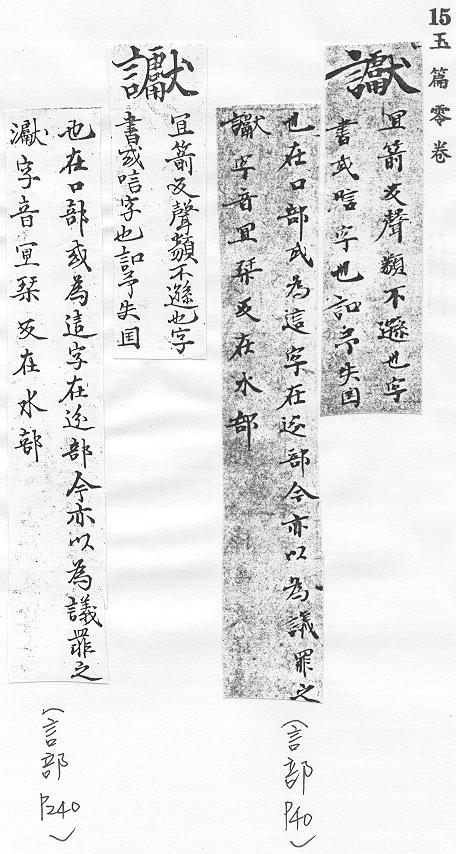 15 玉篇零卷
讞
冝箭反聲類不遜也字
書或唁字也 失囯
也在口部或為這字在辵部今亦以為議罪之
讞字音冝琹反在水部
(言部 P40)
讞
冝箭反聲類不遜也字
書或唁字也 失囯
也在口部或為這字在辵部今亦以為議罪之
字音冝琹反在水部
(言部 P240)